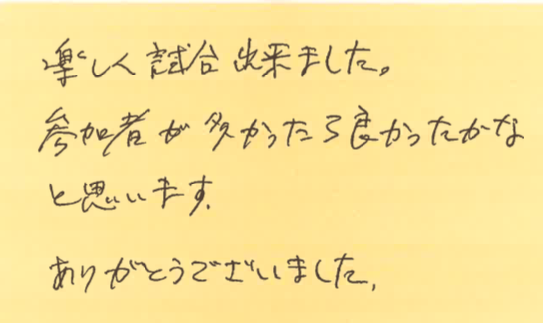 楽しく試合出来ました。
参加者が多かったら良かったかな
と思います。
ありがとうございました。